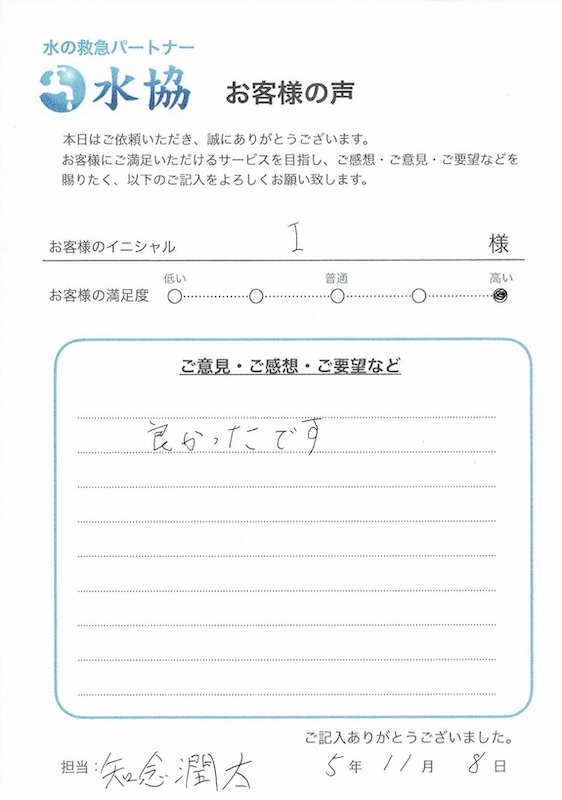 水の救急パートナー
水協 お客様の声
本日はご依頼いただき、誠にありがとうございます。
お客様にご満足いただけるサービスを目指し、ご感想・ご意見・ご要望などを
賜りたく、以下のご記入をよろしくお願い致します。
お客様のイニシャル I 様
低い 普通 高い
お客様の満足度
ご意見・ご感想・ご要望など
良かったです
ご記入ありがとうございました。
担当：知念潤太 5年 11月 8日